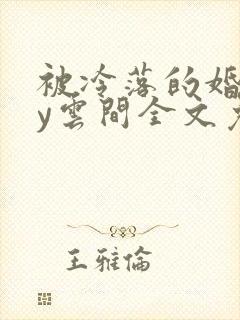 被冷落的婚
y雲間全文
王雅倫